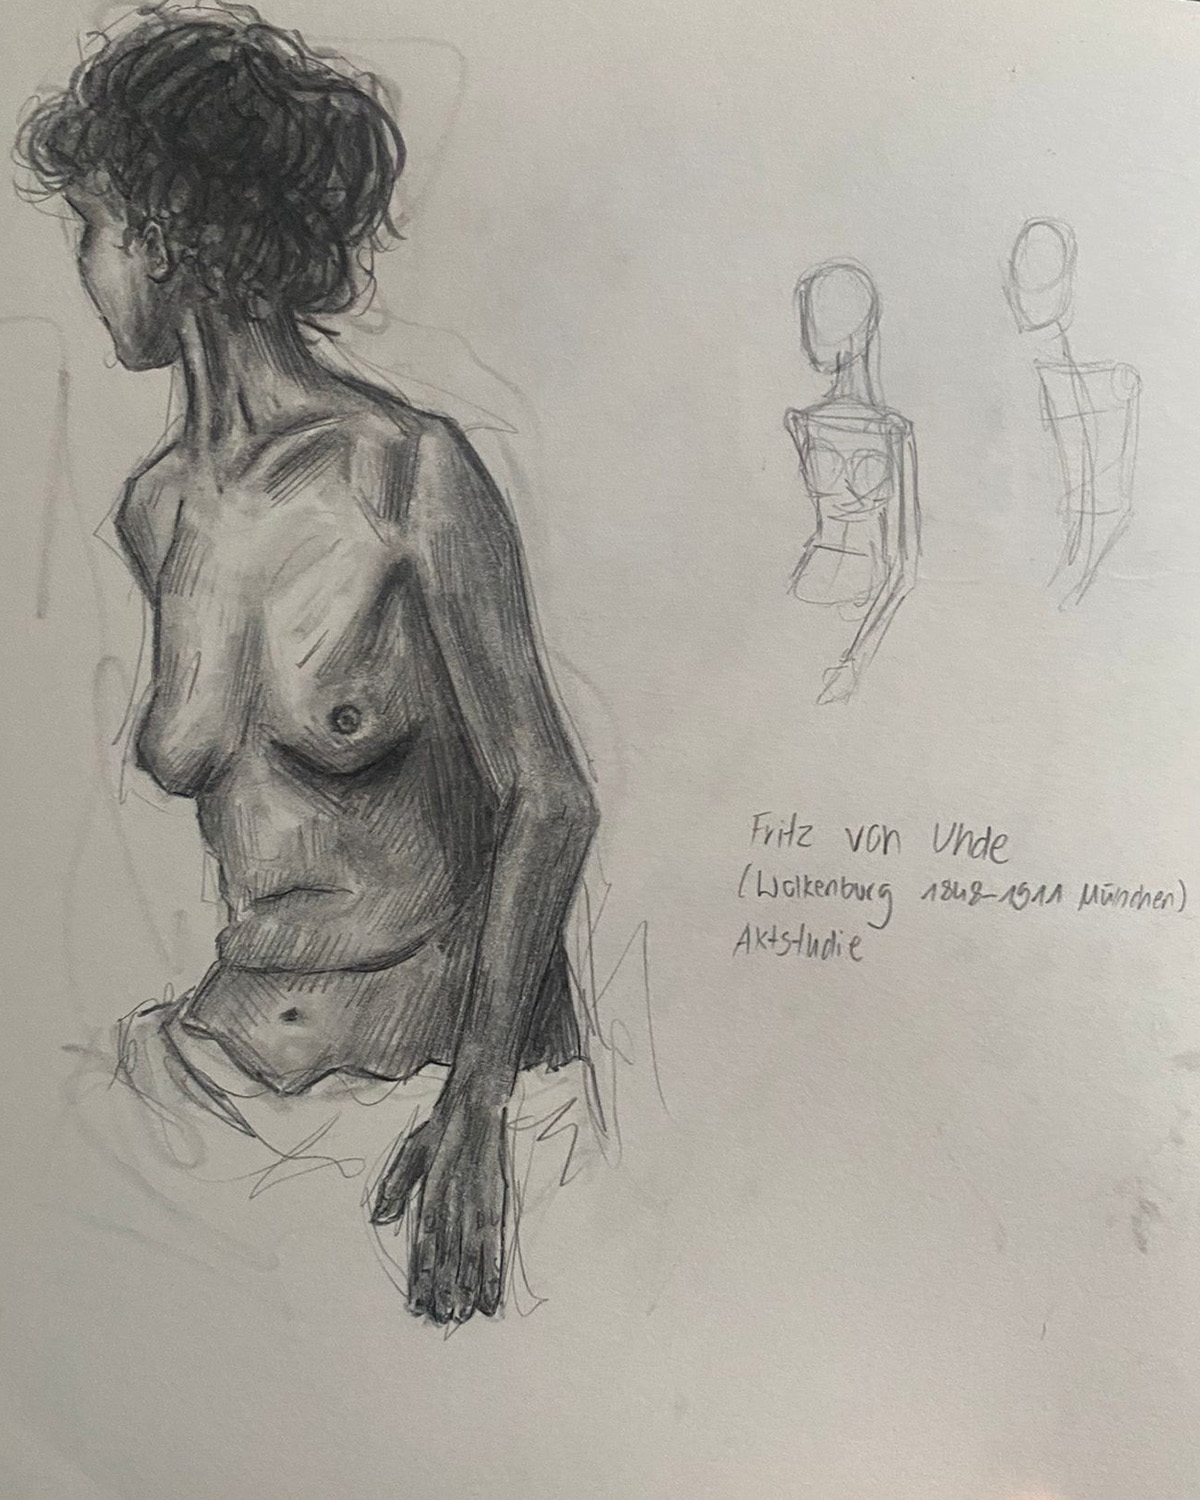 Fritz von Uhde
(Wolkenburg 1848-1911 München)
Aktstudie